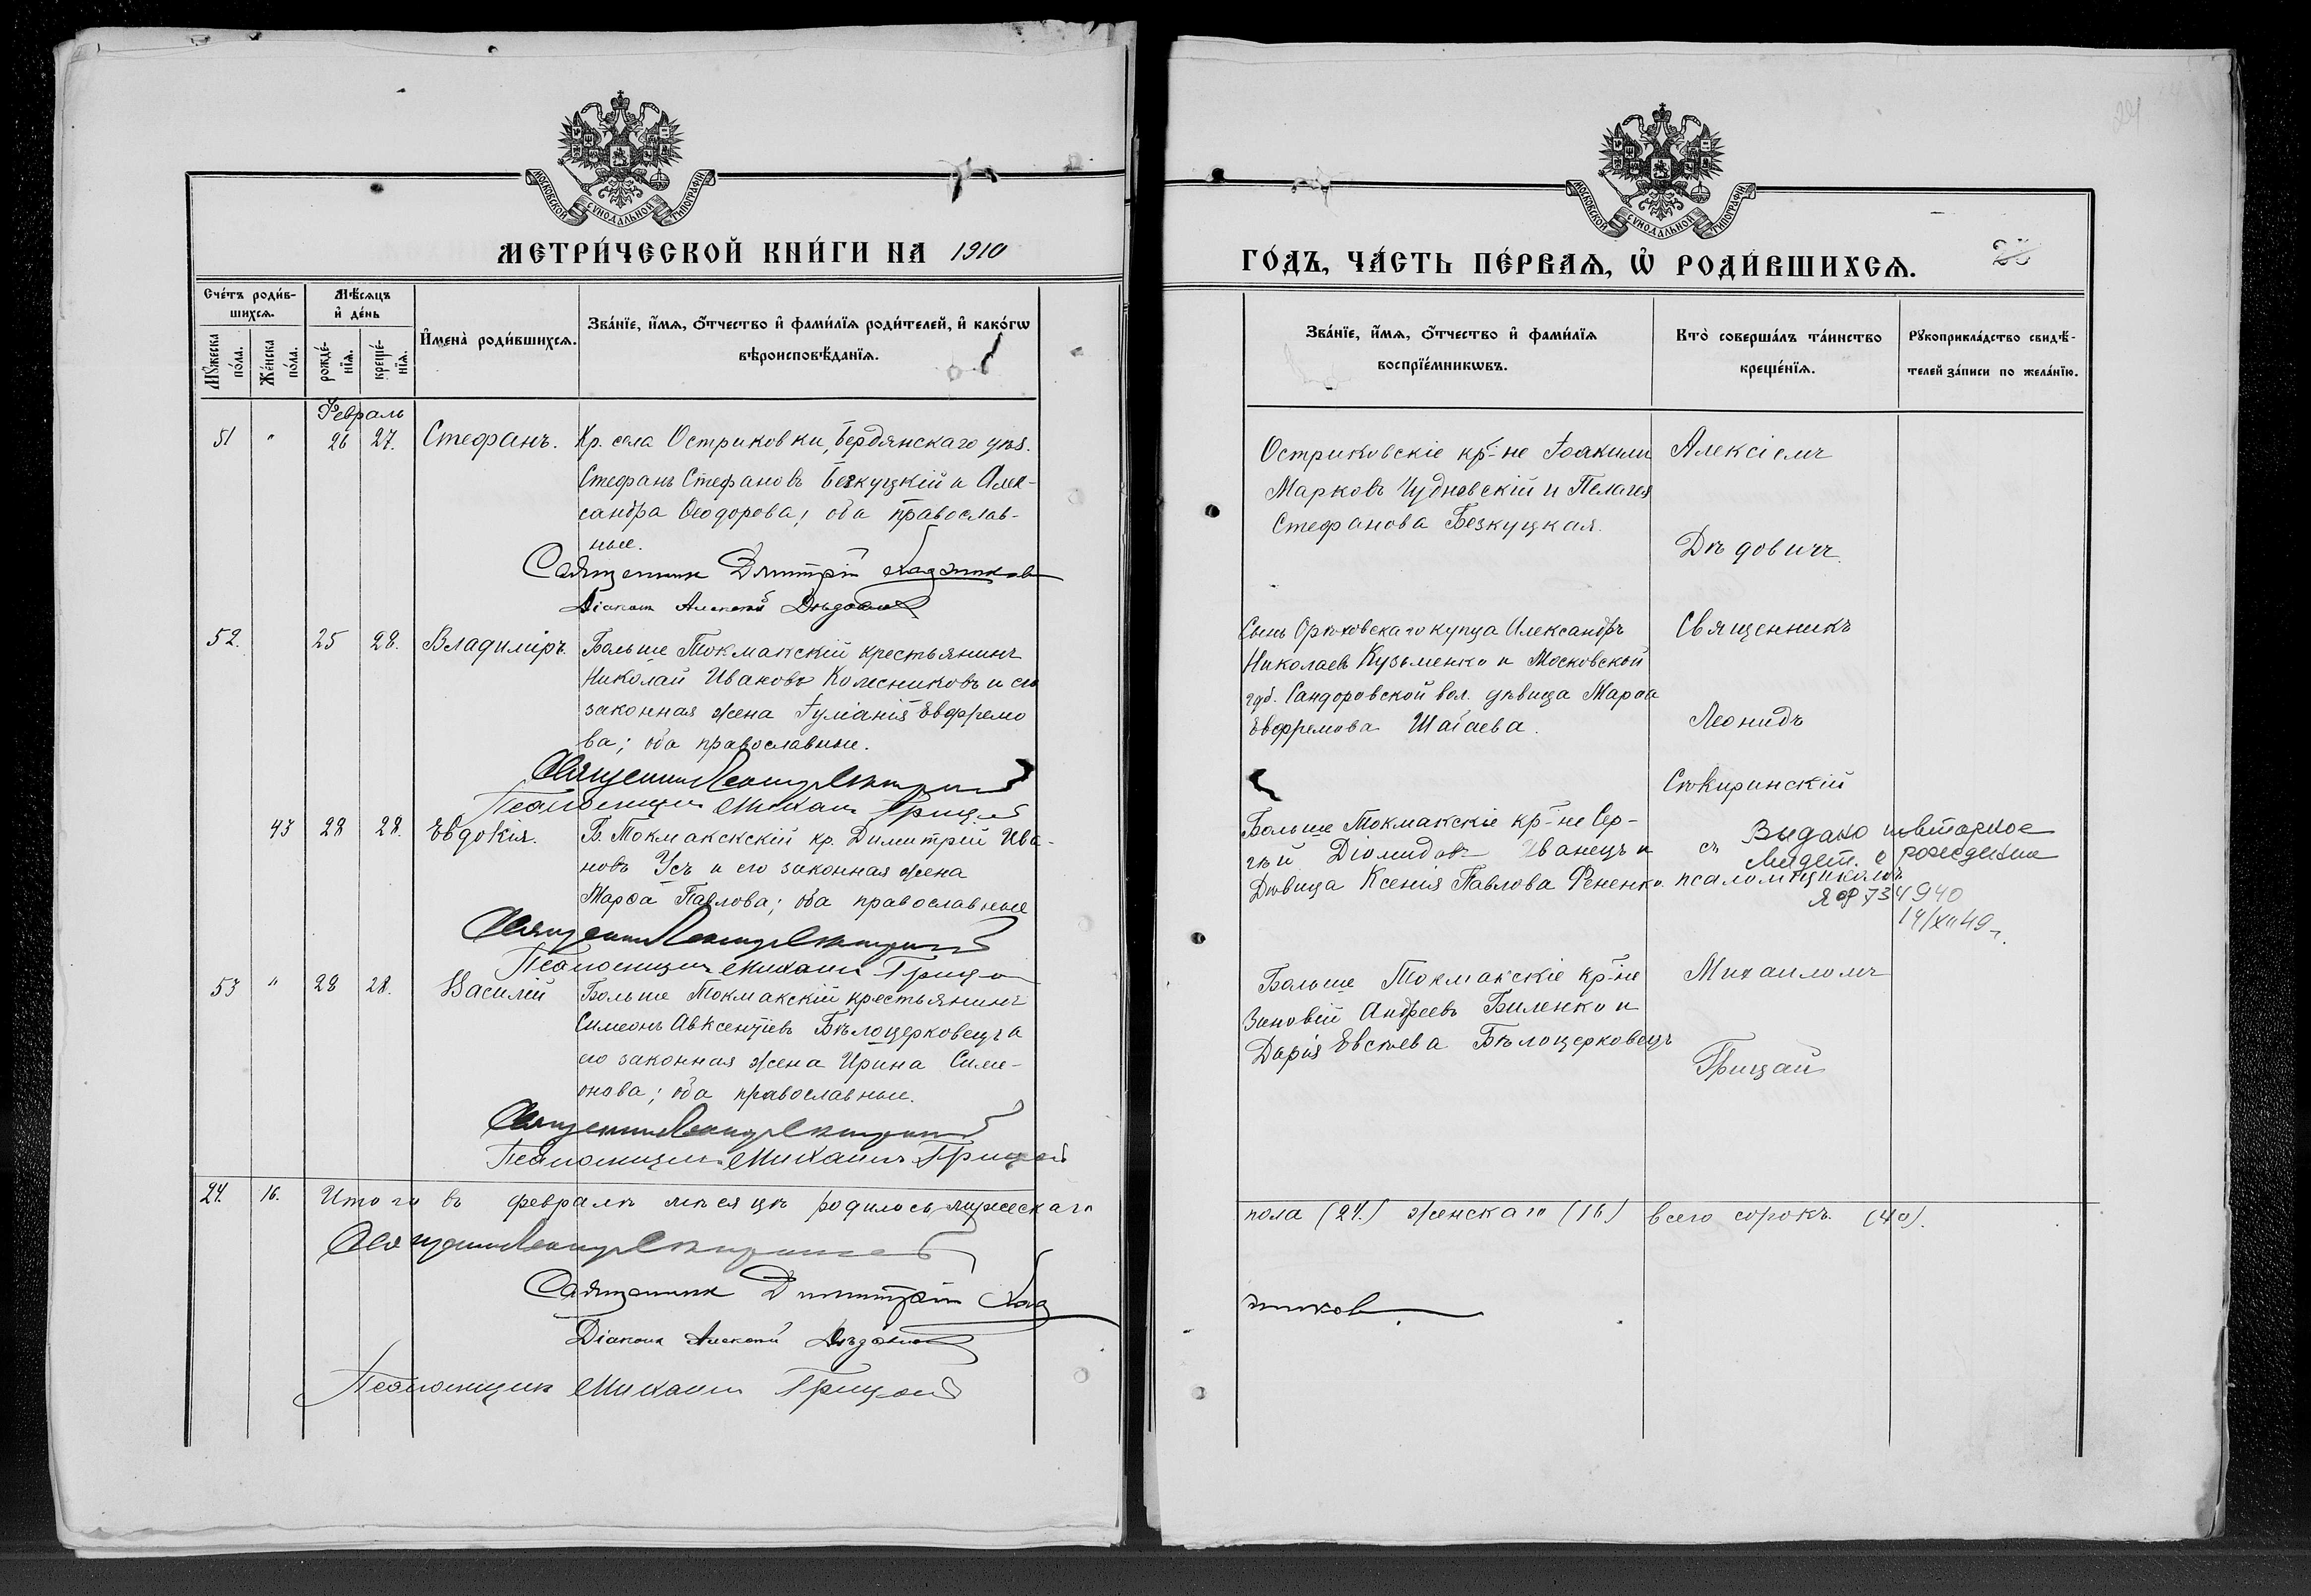 МОСКОВСКОЙ СѴНОДАЛЬНОЙ ТИПОГРАФІИ
МЕТРИ́ЧЕСКОЙ КНИ́ГИ НА 1910
Сче́тъ роди́в-
шихсѧ.
Мѣ́сѧцъ
и҆ де́нь
Мꙋ́жеска
по́ла.
Же́нска
по́ла.
рожде́-
нїѧ.
креще́-
нїѧ.
И҆мена̀ роди́вшихсѧ.
Зва́нїе, и҆́мѧ, ѻ҆́тчество и҆ фами́лїѧ роди́телей, и҆ како́гѡ
вѣроисповѣ́данїѧ.
Февраль
51 " 26 27. Стефанъ. Кр. села Остриковки, Бердянскаго уѣз.
Стефанъ Стефановъ Безкуцкій и Алек-
сандра Ѳеодорова; оба православ-
ные.
Священникъ Дмитрій
Діаконъ Алексѣй Дѣдовичъ
52. 25 28. Владиміръ. Больше Токмакскій крестьянинъ
Николай Ивановъ Колесниковъ и его
законная жена Іуліанія Евфремо
ва; оба православные.
Священникъ Леонидъ Сѣкиринскій
Псаломщикъ Михаилъ Грицай
43 28 28. Евдокія. Б. Токмакскій кр. Димитрій Ива-
новъ Усъ и его законная жена
Марѳа Павлова; оба православные
Священникъ Леонидъ Сѣкиринскій
Псаломщикъ Михаилъ Грицай
53 " 28 28. Василій Больше Токмакскій крестьянинъ
Симеонъ Авксентіевъ Бѣлоцерковецъ и
его законная жена Ирина Симе-
онова; оба православные.
Священникъ Леонидъ Сѣкиринскій
Псаломщикъ Михаилъ Грицай
24. 16. Итого въ февралѣ мѣсяцѣ родилось мужескаго
Священникъ Леонидъ Сѣкиринскій
Священникъ Димитрій
Діаконъ Алексѣй Дѣдовичъ
Псаломщикъ Михаилъ Грицай
МОСКОВСКОЙ СѴНОДАЛЬНОЙ ТИПОГРАФІИ
ГО́ДЪ, ЧА́СТЬ ПЕ́РВАѦ, Ѡ҆ РОДИ́ВШИХСѦ.
Зва́нїе, и҆́мѧ, ѻ҆́тчество и҆ фами́лїѧ
воспрїе́мникѡвъ.
Кто̀ соверша́лъ та́инство
креще́нїѧ.
Рꙋкоприкла́дство свидѣ́-
телей за́писи по жела́нїю.
Остриковскіе кр-не Іоакимъ
Марковъ Чудновскій и Пелагія
Стефанова Безкуцкая.
Алексіемъ
Дѣдовичъ.
Сынъ Орѣховскаго купца Александръ
Николаевъ Кузьменко и Московской
губ. Сандоровской вол. дѣвица Марѳа
Евфремова Шагаева.
Священникъ
Леонидъ
Сѣкиринскій
Больше Токмакскіе кр-не Сер-
гѣй Діомидовъ Иванецъ и
Дѣвица Ксенія Павлова Рененко.
съ
псаломщикомъ
Видано повторное
о рождении
ЯФ 734940
14/XII 49 г.
Больше Токмакскіе кр-не
Зиновій Андреевъ Биленко и
Дарія Евсѣева Бѣлоцерковецъ
Михаиломъ
Грицай
пола (24.) женскаго (16) всего сорокъ. (40).